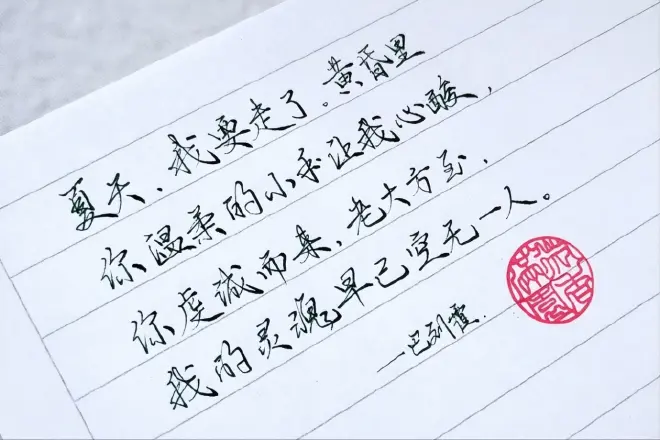 夏天,我要走了。黄昏里
你温柔的小手让我心酸,
你虔诚而来,老大方至,
我的灵魂早已空无一人。
—巴列霍.